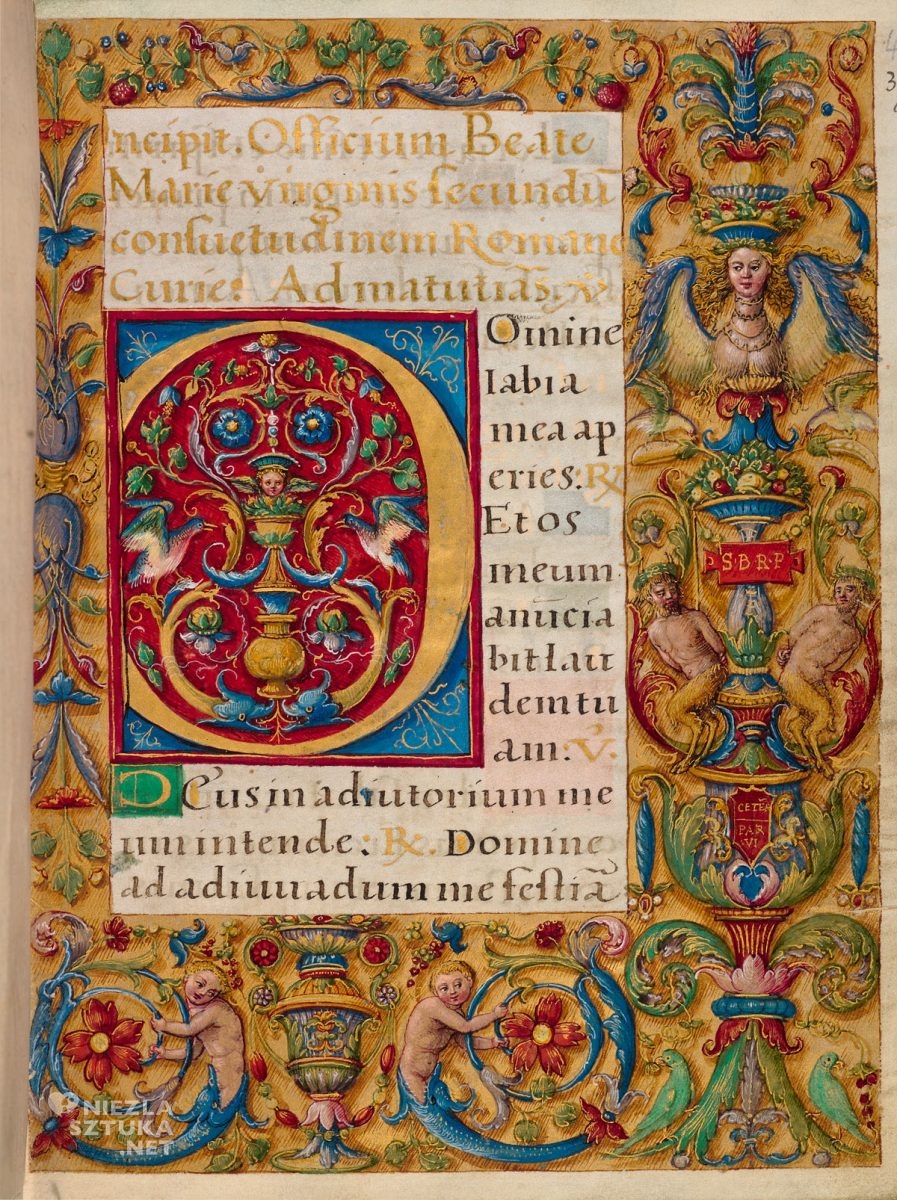 ncipit. Officium Beate
Marie virginis secundū
consuetudinem Romane
Curie. Ad matutias. ℣
D
Omine
labia
mea ap
eries: ℟
Et os
meum
anūcia
bit lau
dem tu
am: ℣.
Deus in adiutorium me
um intende: ℟. Domine
ad adiuuadum me festiā
S·B·R·P
CETE
PAR
VI
NIEZŁA
SZTUKA
.NET